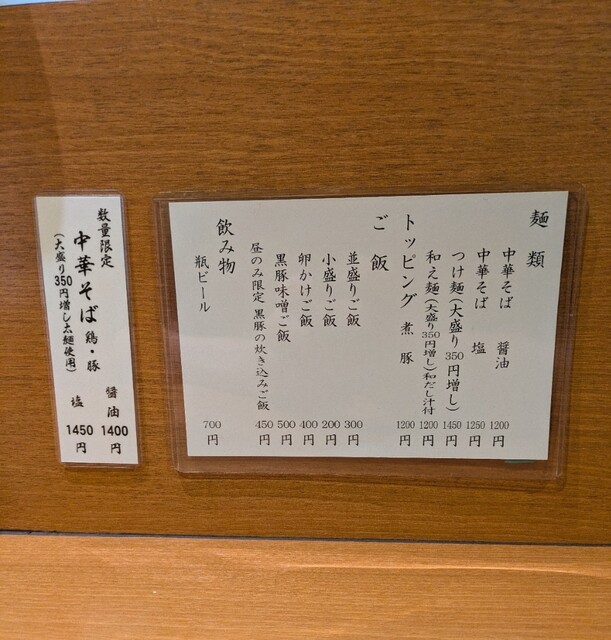 麺類
中華そば 醤油 1200円
中華そば 塩 1250円
つけ麺(大盛り350円増し) 1450円
和え麺(大盛り350円増し)和だし汁付 1200円
トッピング 煮豚 1200円
ご飯
並盛りご飯 300円
小盛りご飯 200円
卵かけご飯 400円
黒豚味噌ご飯 500円
昼のみ限定 黒豚の炊き込みご飯 450円
飲み物
瓶ビール 700円
数量限定
中華そば 鶏・豚 醤油 1400円
塩 1450円
(大盛り350円増し太麺使用)